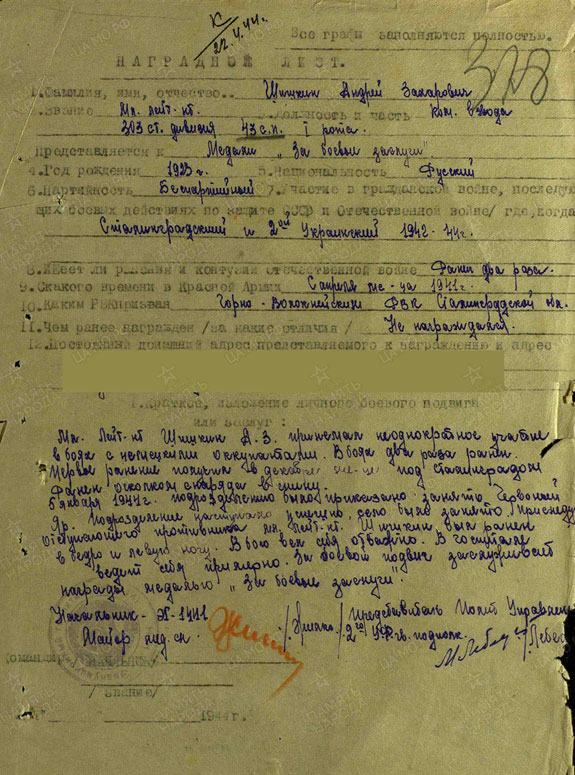 К
22.4.44г.
Все графы заполняются полностью.
328
НАГРАДНОЙ ЛИСТ.
1.Фамилия, имя, отчество.. Шишкин Андрей Захарович
2.Звание Мл. лейт-нт. 3.Должность и часть Ком. взвода
303 ст. дивизия 43 с.п. I рота.
Представляется к Медали „За боевые заслуги"
4.Год рождения 1923 5.Национальность Русский
6.Партийность Беспартийный 7.Участие в гражданской войне, последую
щих боевых действиях по защите СССР и Отечественной войне/ где,когда
Сталинградский и 2ой Украинский 1942-44г.
8.Имеет ли ранения и контузии отечественной войне Ранен два раза.
9.С какого времени в Красной Армии С апреля м-ца 1941г.
10.Каким РВК призван РВК Сталинградской обл.
11.Чем ранее награжден /за какие отличия/ Не награждался.
12.Постоянный домашний адрес представляемого к награждению и адрес
1.Краткое, изложение личного боевого подвига
или заслуг :
Мл. Лейт-нт Шишкин А.З. принимал неоднократное участие
в боях с немецкими оккупантами. В боях два раза ранен.
Первое ранение получил в декабре м-це под Сталинградом
Ранен осколком снаряда в спину.
5 января 1944г. подразделению было приказано занять Червоный
Яр. Подразделение наступало успешно, село было занято. Преследуя
отступающего противника мл. лейт-нт. Шишкин был ранен
в бедро и левую ногу. В бою вел себя отважно. В госпитале
ведет себя примерно. За боевой подвиг заслуживает
награды медалью „За боевые заслуги".
Начальник ЭГ-1441 Представитель Полит Управлен
Майор мед. сл. 2го УФ гв. подполк.
Командир/ Начальник/
/ звание/
" " 1944г.